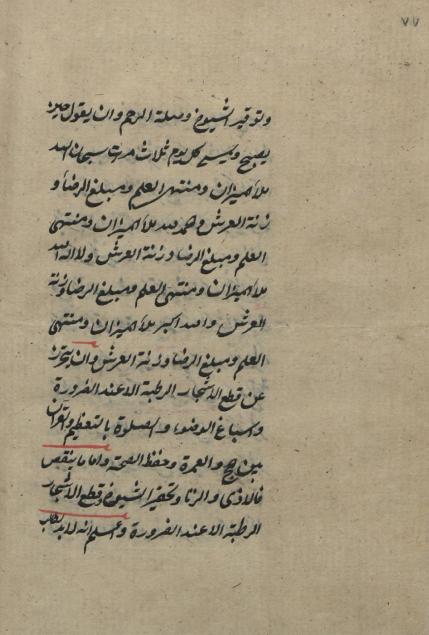 ٧٧
وتوقير الشيوخ وصلة الرحم وان يقول حين
يصبح ويمسي كل يوم ثلاث مرات سبحان الله
ملأ الميزان ومنتهى العلم ومبلغ الرضا و
زنة العرش والحمد لله ملأ الميزان ومنتهى
العلم ومبلغ الرضا وزنة العرش ولا اله الا الله
ملأ الميزان ومنتهى العلم ومبلغ الرضا وزنة
العرش والله اكبر ملأ الميزان ومنتهى
العلم ومبلغ الرضا وزنة العرش وان يتحرز
عن قطع الاشجار الرطبة الا عند الضرورة
واسباغ الوضوء والصلوة بالتعظيم والقران
بين الحج والعمرة وحفظ الصحة واما ما ينقص
فالاذى والزنا وتحقير الشيوخ وقطع الاشجار
الرطبة الا عند الضرورة واعلم انه لا بد لطالب